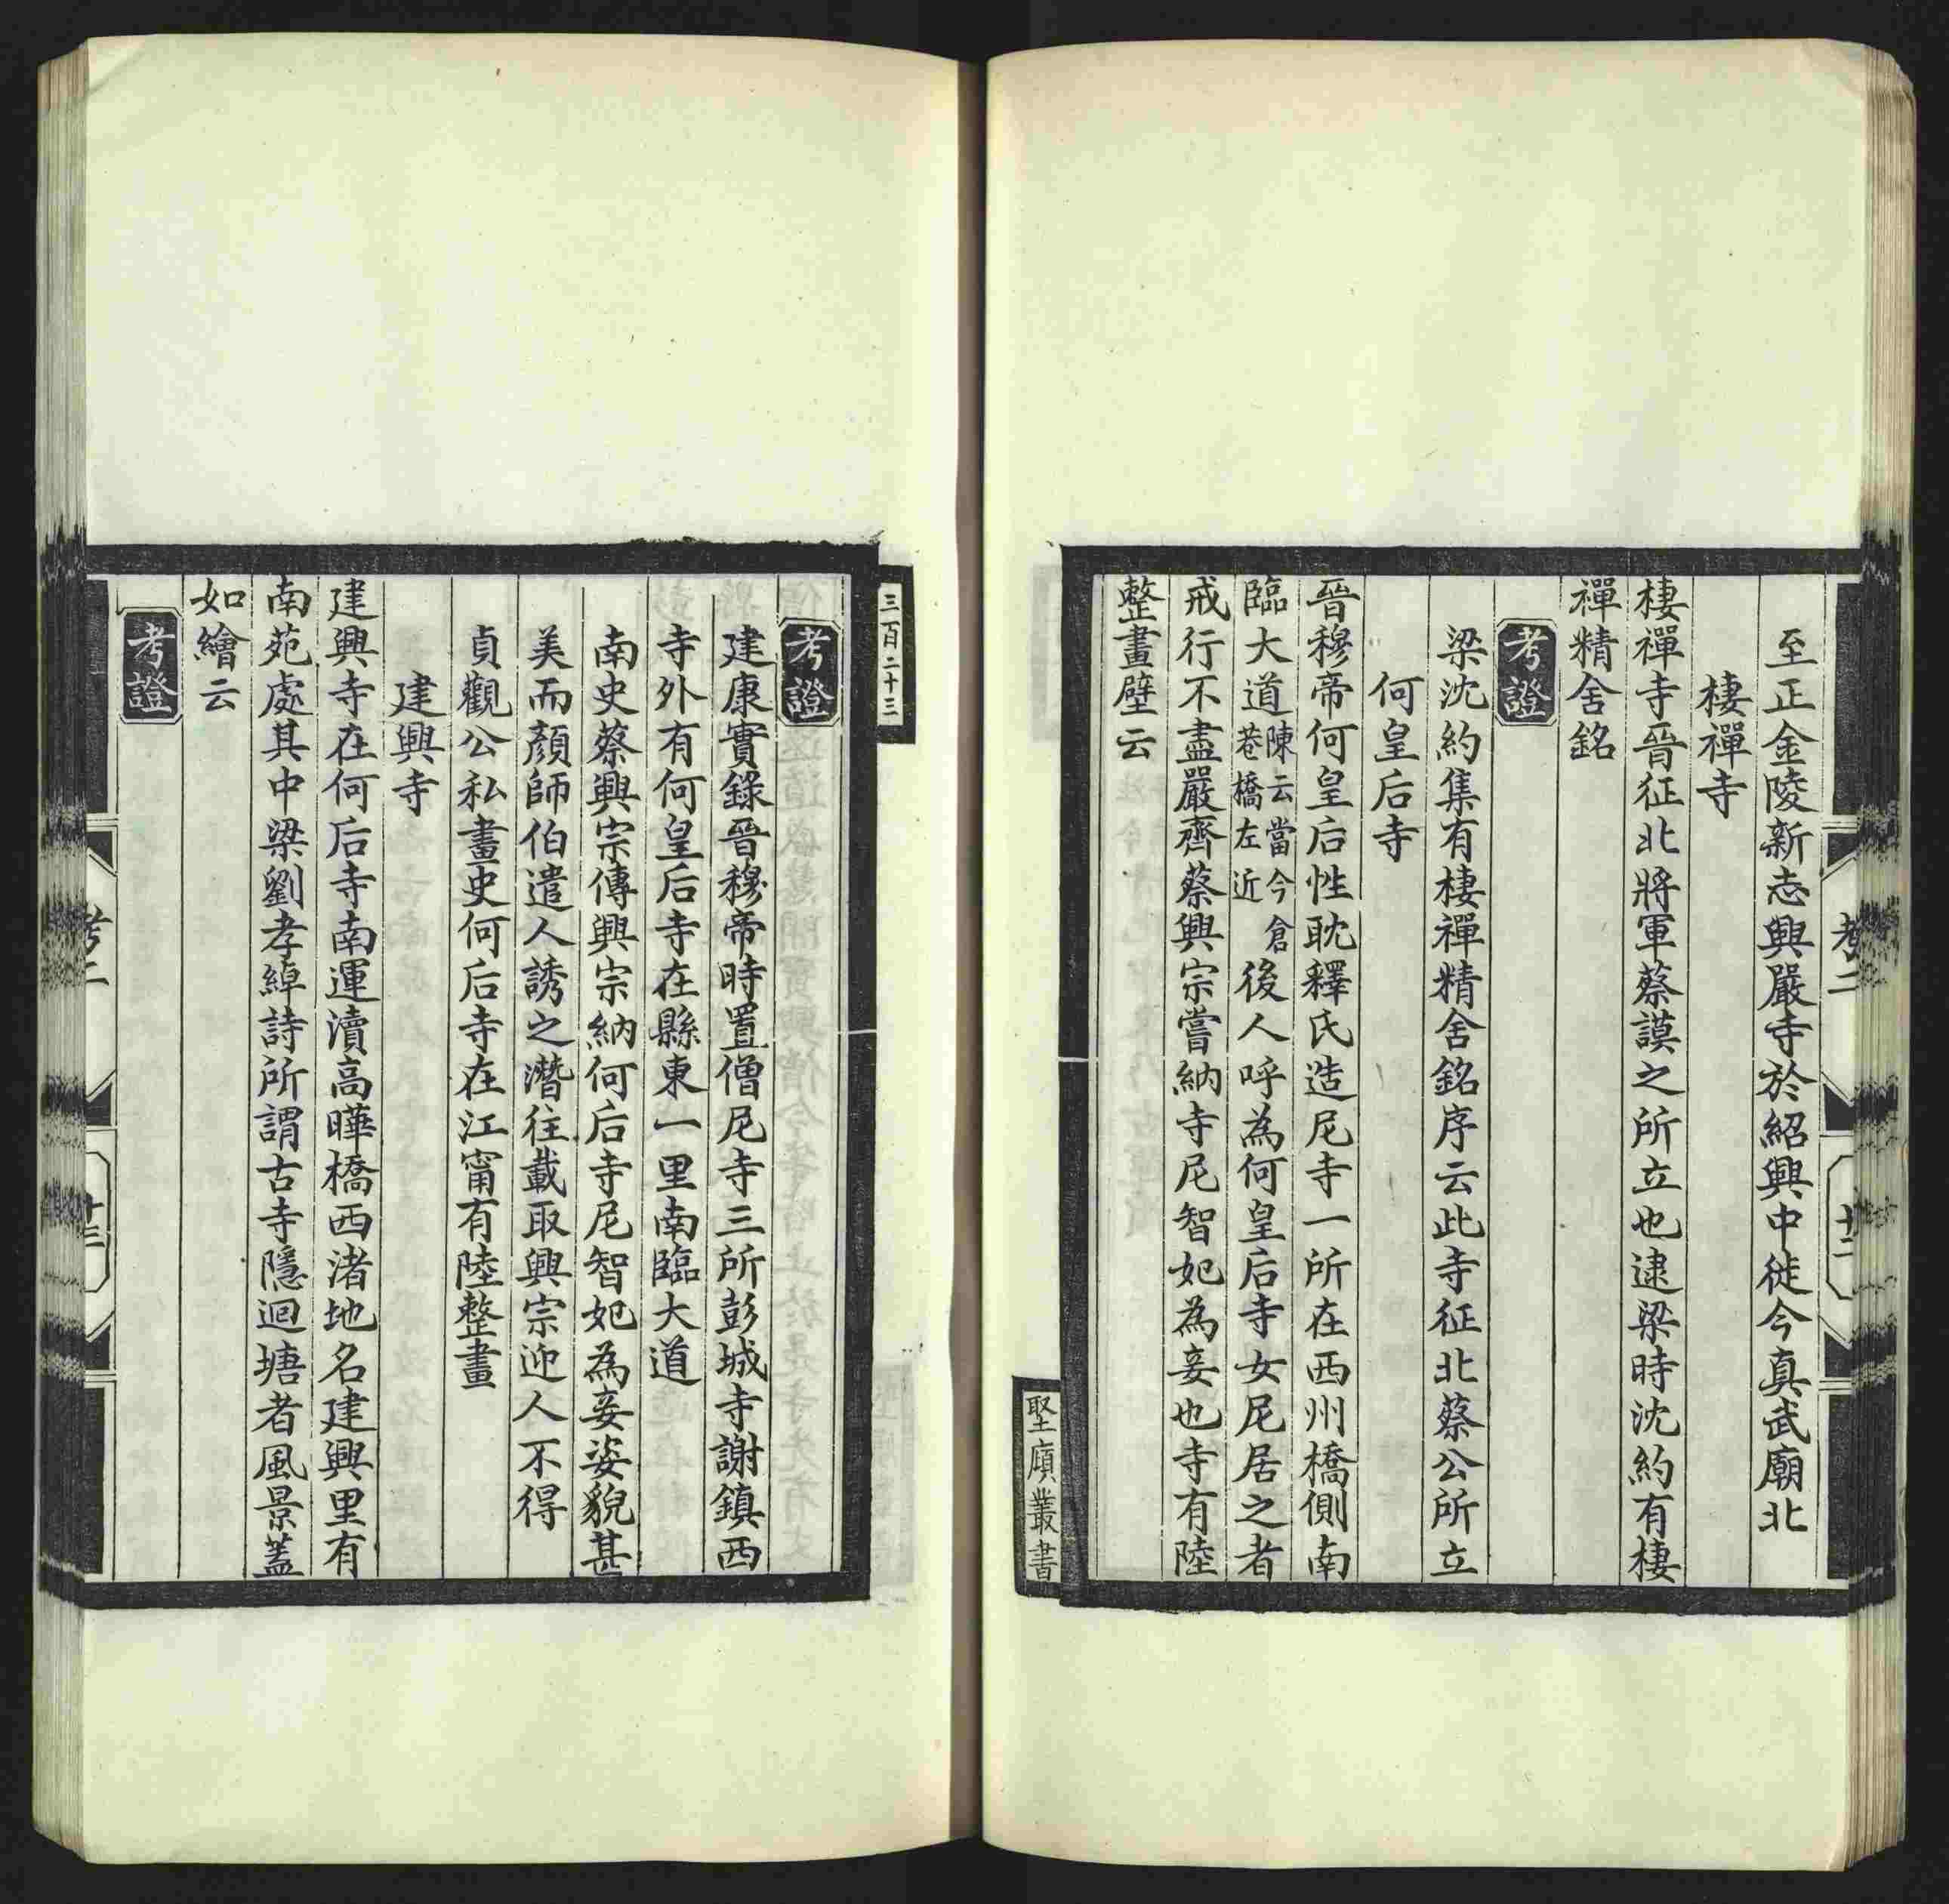 至正金陵新志興嚴寺於紹興中徙今真武廟北
棲禪寺
棲禪寺晉征北將軍蔡謨之所立也逮梁時沈約有棲
禪精舍銘
考證
梁沈約集有棲禪精舍銘序云此寺征北蔡公所立
何皇后寺
晉穆帝何皇后性耽釋氏造尼寺一所在西州橋側南
臨大道陳云當今倉巷橋左近後人呼為何皇后寺女尼居之者
戒行不盡嚴齊蔡興宗嘗納寺尼智妃為妾也寺有陸
整畫壁云
考二
十二
聖廎叢書
三百二十三
考證
建康實錄晉穆帝時置僧尼寺三所彭城寺謝鎮西
寺外有何皇后寺在縣東一里南臨大道
南史蔡興宗傳興宗納何后寺尼智妃為妾姿貌甚
美而顏師伯遣人誘之潛往載取興宗迎人不得
貞觀公私畫史何后寺在江甯有陸整畫
建興寺
建興寺在何后寺南運瀆高曄橋西渚地名建興里有
南苑處其中梁劉孝綽詩所謂古寺隱迴塘者風景蓋
如繪云
考證